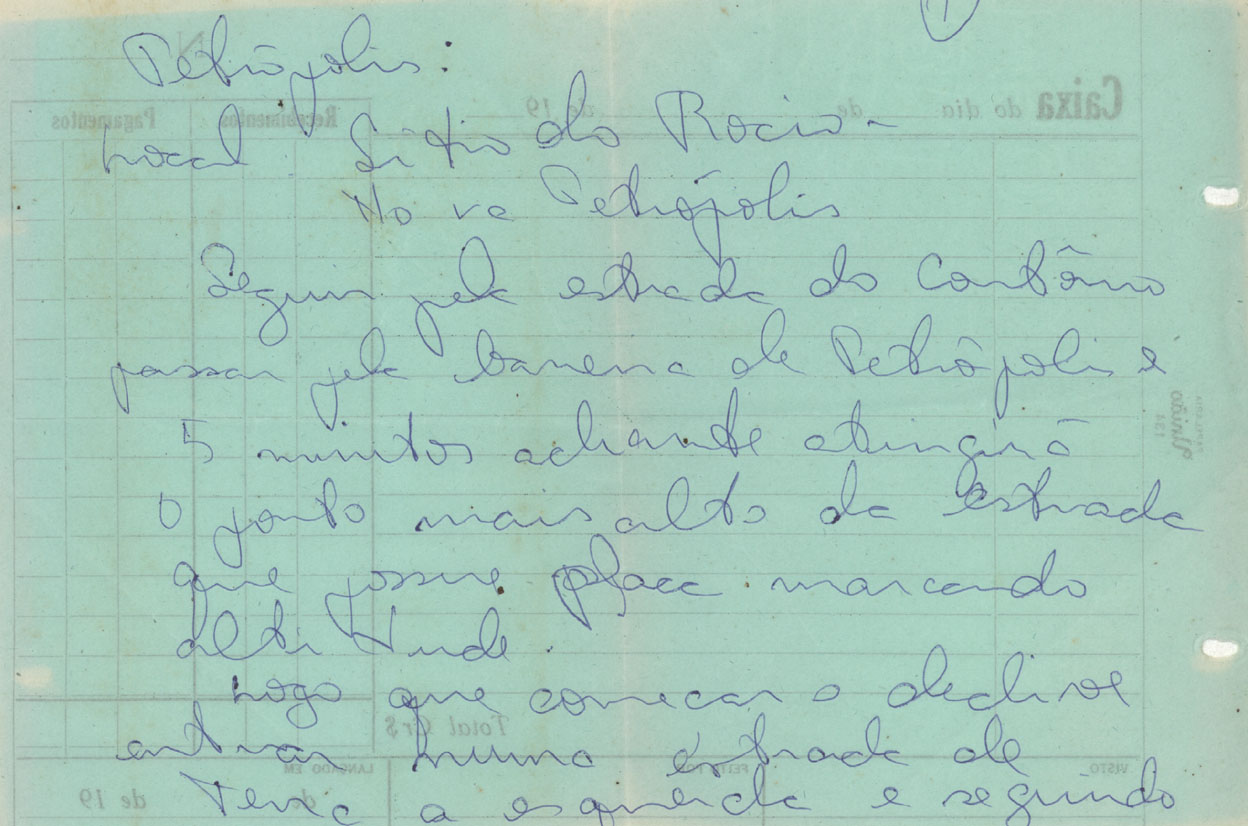 1
Petrópolis:
Local Sitio do Rocio -
Nova Petrópolis
Seguir pela estrada do Contôrno
passar pela barreira de Petrópolis e
5 minutos adiante atingirá
o ponto mais alto da estrada
que possue placa marcando
altitude.
Logo que começar o declive
entrar numa estrada de
Terra a esquerda e segundo
Caixa do dia de de 19
Recebimentos Pagamentos
Total Cr$
VISTO FEITO POR LANÇADO EM
de de 19
União